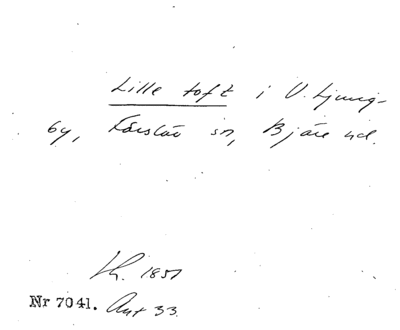 Lille toft i V. Ljung-
by, Förslöv sn, Bjäre hd.
Lh. 1851
Nr 7041. Akt 33.